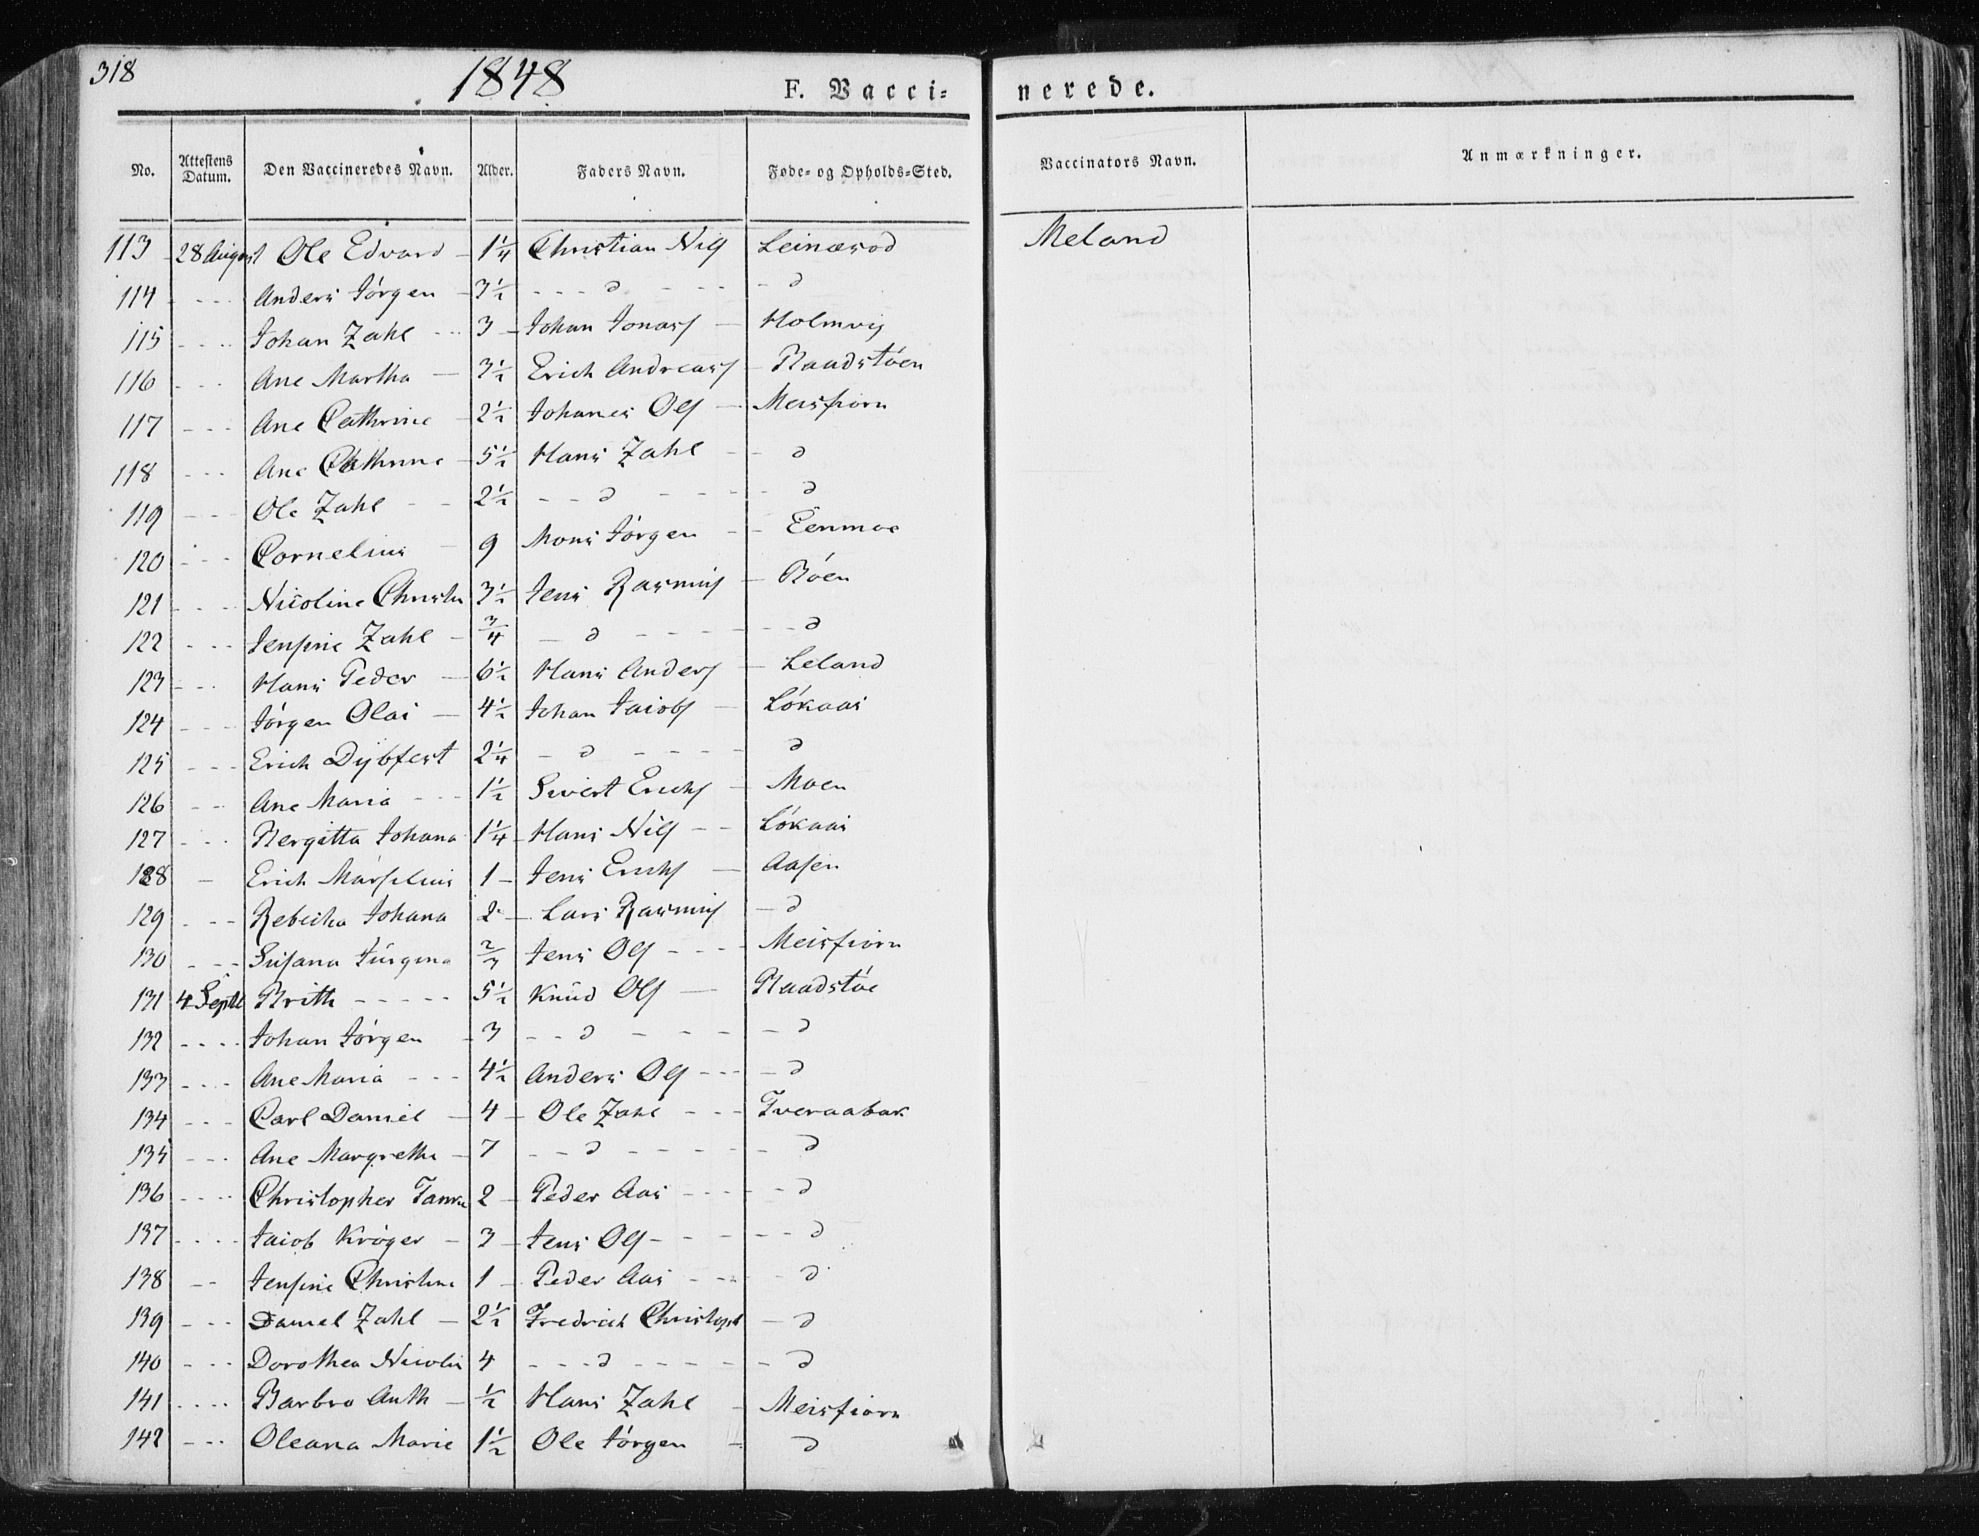 318 1848 F. Vacci= nerede.
No. Attestens Datum. Den Vaccineredes Navn. Alder. Faders Navn. Føde- og Opholds-Sted. Vaccinators Navn. Anmærkninger.
113 28 August Ole Edvard - 1 1/4 Christian Nils Leinæsod Meland
114 - - - Anders Jörgen - 3 1/2 - - - d - - - - d
115 - - - Johan Zahl - - 3 - Johan Jonas - Holmvig
116 - - - Ane Martha - 3 1/2 Erich Andreas - Baadstöen
117 - - - Ane Cathrine - 2 1/2 Johanes Ols - Meisfiorn
118 - - - Ane Cathrine - 5 1/2 Hans Zahl - - d
119 - - - Ole Zahl - - 2 1/2 - - d - - - - d
120 - - - Cornelius - 9 Mons Jörgen - - Eenmoe
121 - - - Nicoline Christi 3 1/2 Jens Rasmus - Röen
122 - - - Jensine Zahl - 3/4 - d - - - - - d
123 - - - Hans Peder - 6 1/2 Hans Anders - Leland
124 - - - Jörgen Olai - 4 1/2 Johan Jaiobs - Lökaas
125 - - - Erich Dybfest 2 1/4 - d - - - - d
126 - - Ane Maria - - - 1 1/2 Sivert Erichs - Moen
127 - - - Bergitta Johana 1 1/4 Hans Nils - - Lökaas
128 - Erich Marselius 1 - Jens Erichs - Aasen
129 - - - Rebecka Johana 2 - Lars Rasmus - d
130 - - - Susana Jürgina 2/3 Jens Ols - - - Meisfiorn
131 4 Septb Brith - - - - - 5 1/2 Knud Ols - Baadstöe
132 - - - - Johan Jörgen - 3 - - d - - - - d
133 - - - Ane Maria - - - 4 1/2 Anders Ols - - - d
134 - - - Carl Daniel - 4 - Ole Zahl - - - Tveraabak
135 - - - Ane Margretha - 7 - - d - - - - - d
136 - - - - Christopher Tanke 2 - Peder Aas - - - - d
137 - - - - Jaiob Kröger - 3 - Jens Ols - - - - - d
138 - - Jensine Christine 1 - Peder Aas - - - - d
139 - - - Daniel Zahl - 2 1/2 Fredrich Christoph - d
140 - - - Dorothea Nicoli 4 - - - d - - - - - d
141 - - - - Barbro Anth - 1/2 Hans Zahl - Meisfiorn
142 - - - Oleana Marie 1 1/2 Ole Jörgen - d